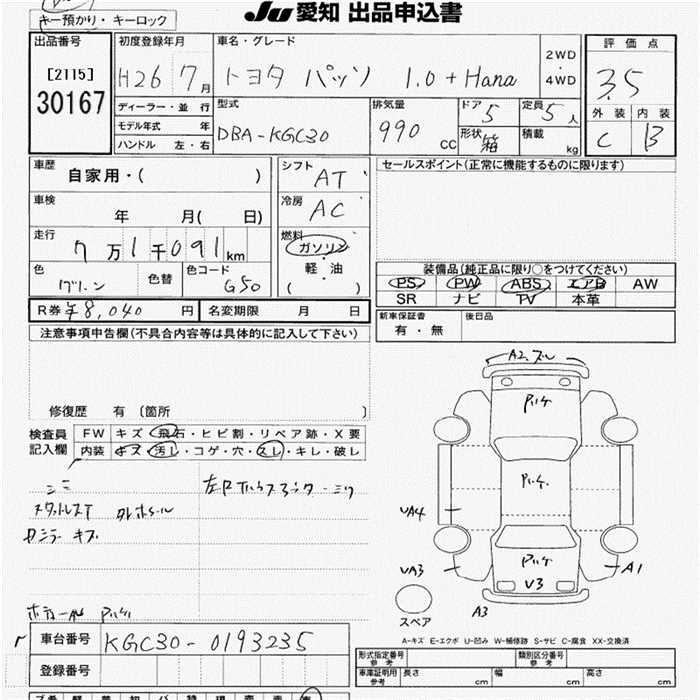 JU愛知 出品申込書
キー預かり・キーロック
出品番号
[2115]
30167
初度登録年月
H26 7月
ディーラー・並行
モデル年式 年
ハンドル 左・右
車名・グレード
トヨタ パッソ 1.0 + Hana
2WD
4WD
型式
DBA-KGC30
排気量
990 CC
ドア
5
形状
箱
定員
5人
積載
kg
評価点
3.5
外装 内装
C B
車歴
自家用・( )
車検
年 月( 日)
走行
7万1千091km
色
グリーン
色替
色コード
G50
シフト
AT
冷房
AC
燃料
ガソリン
・
軽油
( )
セールスポイント(正常に機能するものに限ります)
装備品(純正品に限り○をつけてください)
PS PW ABS エアB AW
SR ナビ TV 本革
新車保証書
有・無
後日品
R券 ¥8,040 円
名変期限 月 日
注意事項申告欄(不具合内容等は具体的に記入して下さい)
修復歴 有 〔箇所 〕
検査員
記入欄
FW キズ・飛石・ヒビ割・リペア跡・X要
内装 キズ・汚し・コゲ・穴・スレ・キレ・破レ
シミ
スタットレスT
キズ
A2
VA4
VA3
V3
A3
A1
スペア
A-キズ E-エクボ U-凹み W-補修跡 S-サビ C-腐食 XX-交換済
車台番号
KGC30-0193235
登録番号
形式指定番号
参考
類別区分番号
参考
車庫証明用
参考
長さ cm
幅 cm
高さ cm